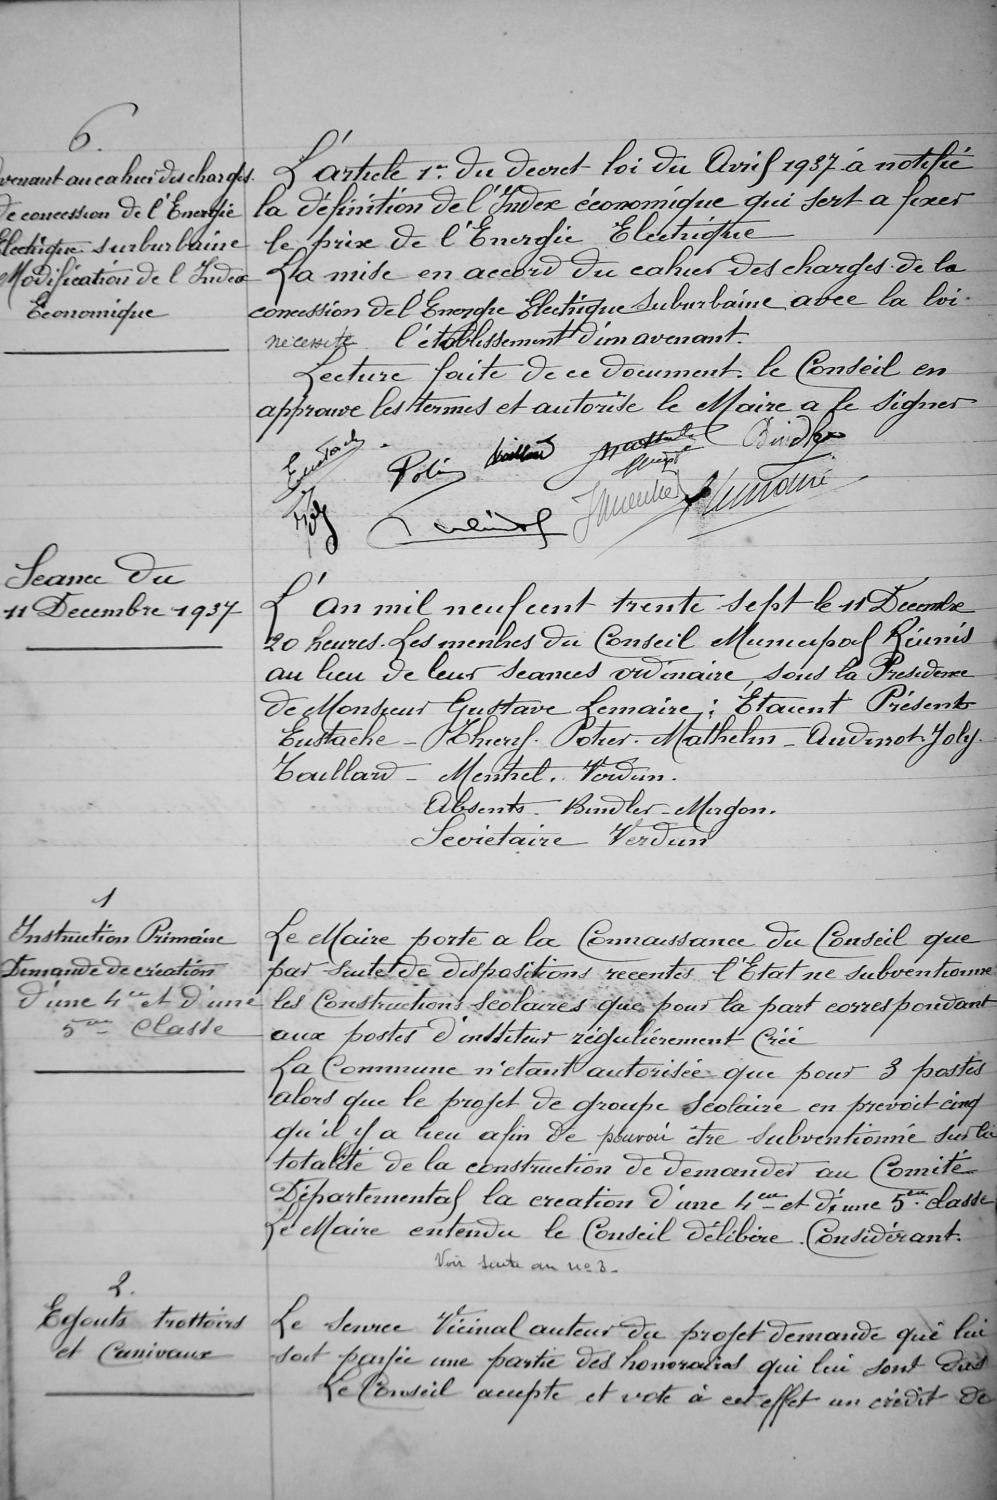 6.
venant au cahier des charges
de concession de l'Energie
Electrique surburbaine
Modification de l'Index
Economique
L'article 1er du decret loi du Avril 1937 à notifié
la définition de l'Index économique qui sert a fixer
le prix de l'Energie Electrique
La mise en accord du cahier des charges de la
concession de l'Energie Electrique suburbaine avec la loi
necessite l'établissement d'un avenant.
Lecture faite de ce document. le Conseil en
approuve les termes et autorise le Maire a le signer
Eustache
Bindler
Joly
Seance du
11 Decembre 1937
L'an mil neuf cent trente sept le 11 Decembre
20 heures. Les menbres du Conseil Municipal Réunis
au lieu de leur seances ordinaire, sous la Presidence
de Monsieur Gustave Lemaire; Étaient Présents
Eustache - Thierry. Potier. Mathelin - Audinot. Joly.
Taillard - Menhel. Verdun.
Absents. Bindler - Morgon.
Secrietaire Verdun
1
Instruction Primaire
Demande de création
d'une 4me et d'une
5me Classe
Le Maire porte a la Connaissance du Conseil que
par suite de dispositions recentes l'Etat ne subventionne
les Constructions scolaires que pour la part correspondant
aux postes d'institeur régulièrement Créé
La Commune n'etant autorisée que pour 3 postes
alors que le projet de groupe scolaire en prevoit cinq
qu'il y a lieu afin de pouvoir être subventionné sur la
totalité de la construction de demander au Comité
Départemental la creation d'une 4me et d'une 5me classe
Le Maire entendu le Conseil délibère. Considérant.
Voir suite au no 3.
2.
Egouts trottoirs
et Canivaux
Le Service Vicinal auteur du projet demande que lui
soit payée une partie des honoraires qui lui sont dus
Le Conseil accepte et vote à cet effet un crédit de